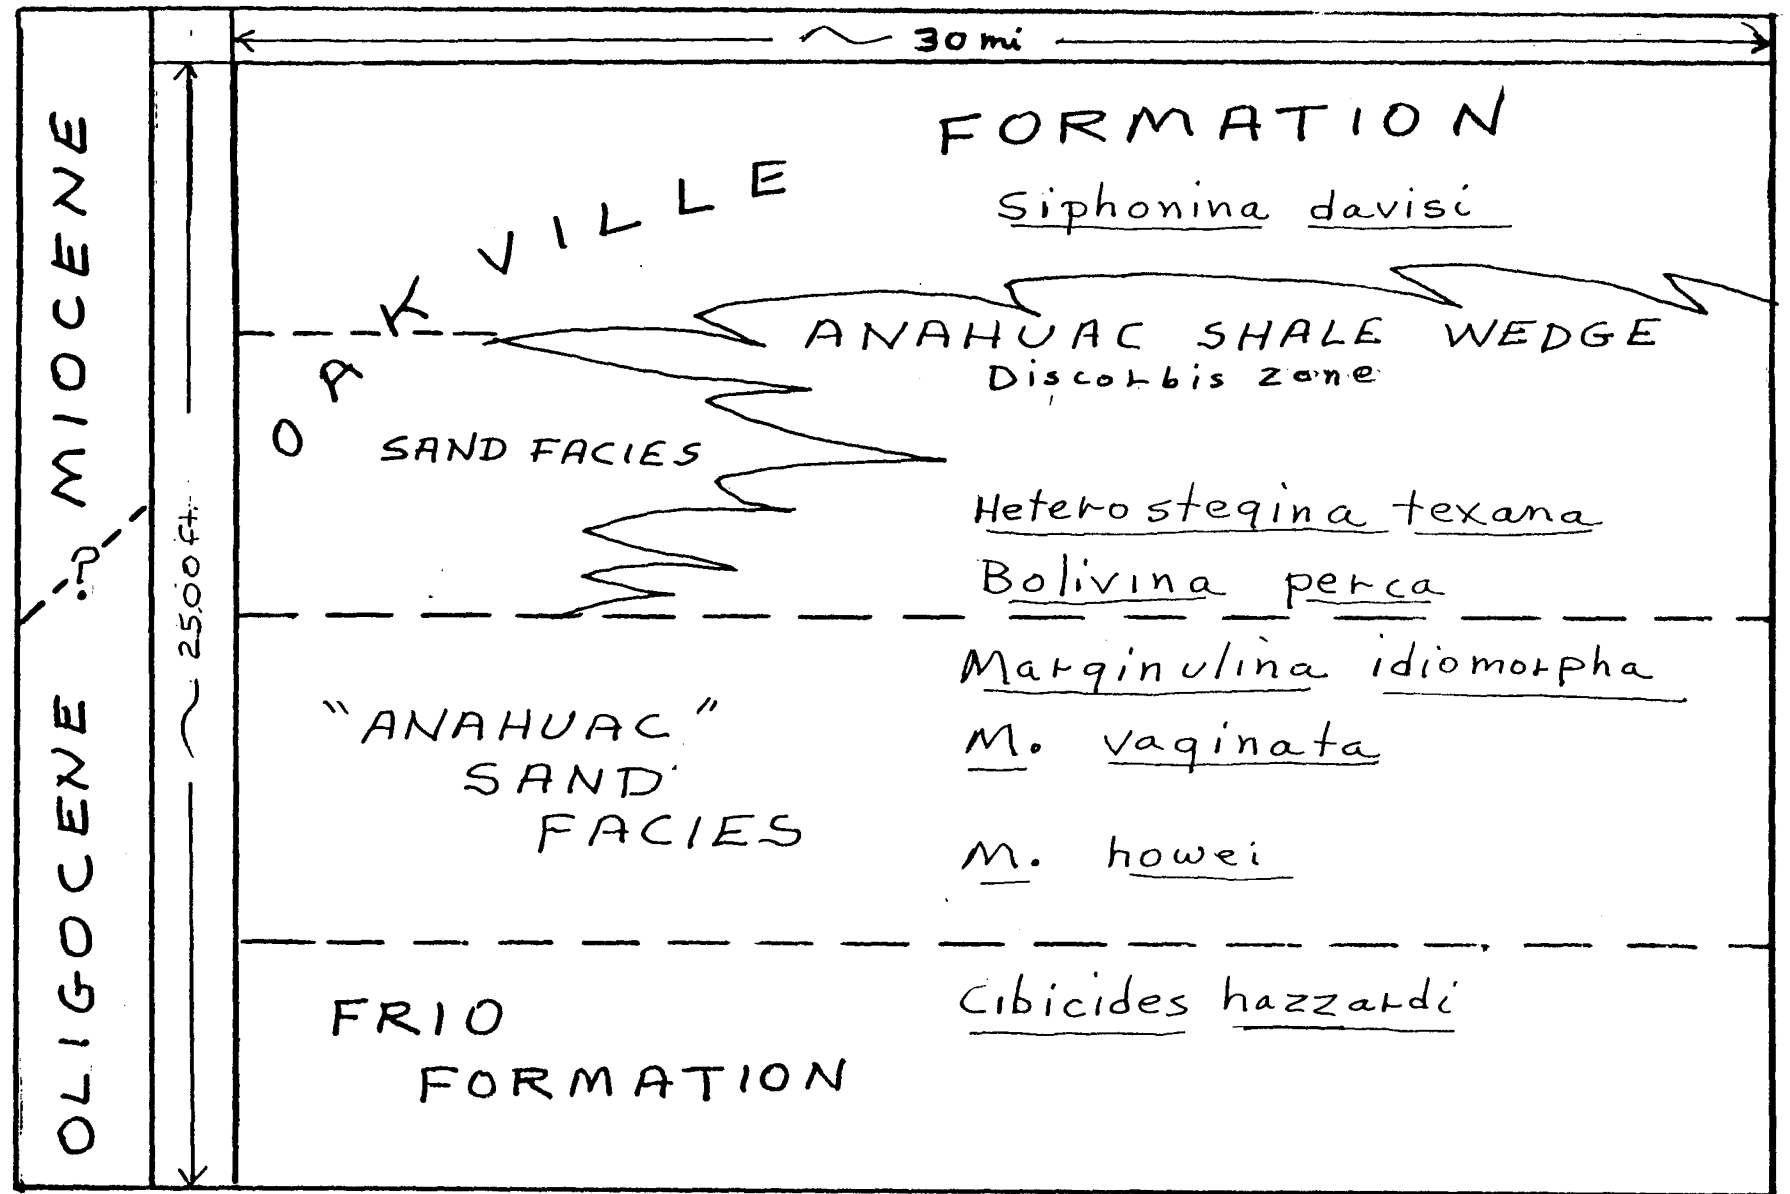 ~ 30 mi
MIOCENE
?
OLIGOCENE
~ 2500 ft.
OAKVILLE FORMATION
Siphonina davisi
ANAHUAC SHALE WEDGE
Discorbis zone
SAND FACIES
Heterostegina texana
Bolivina perca
Marginulina idiomorpha
"ANAHUAC"
SAND
FACIES
M. vaginata
M. howei
FRIO
FORMATION
Cibicides hazzardi